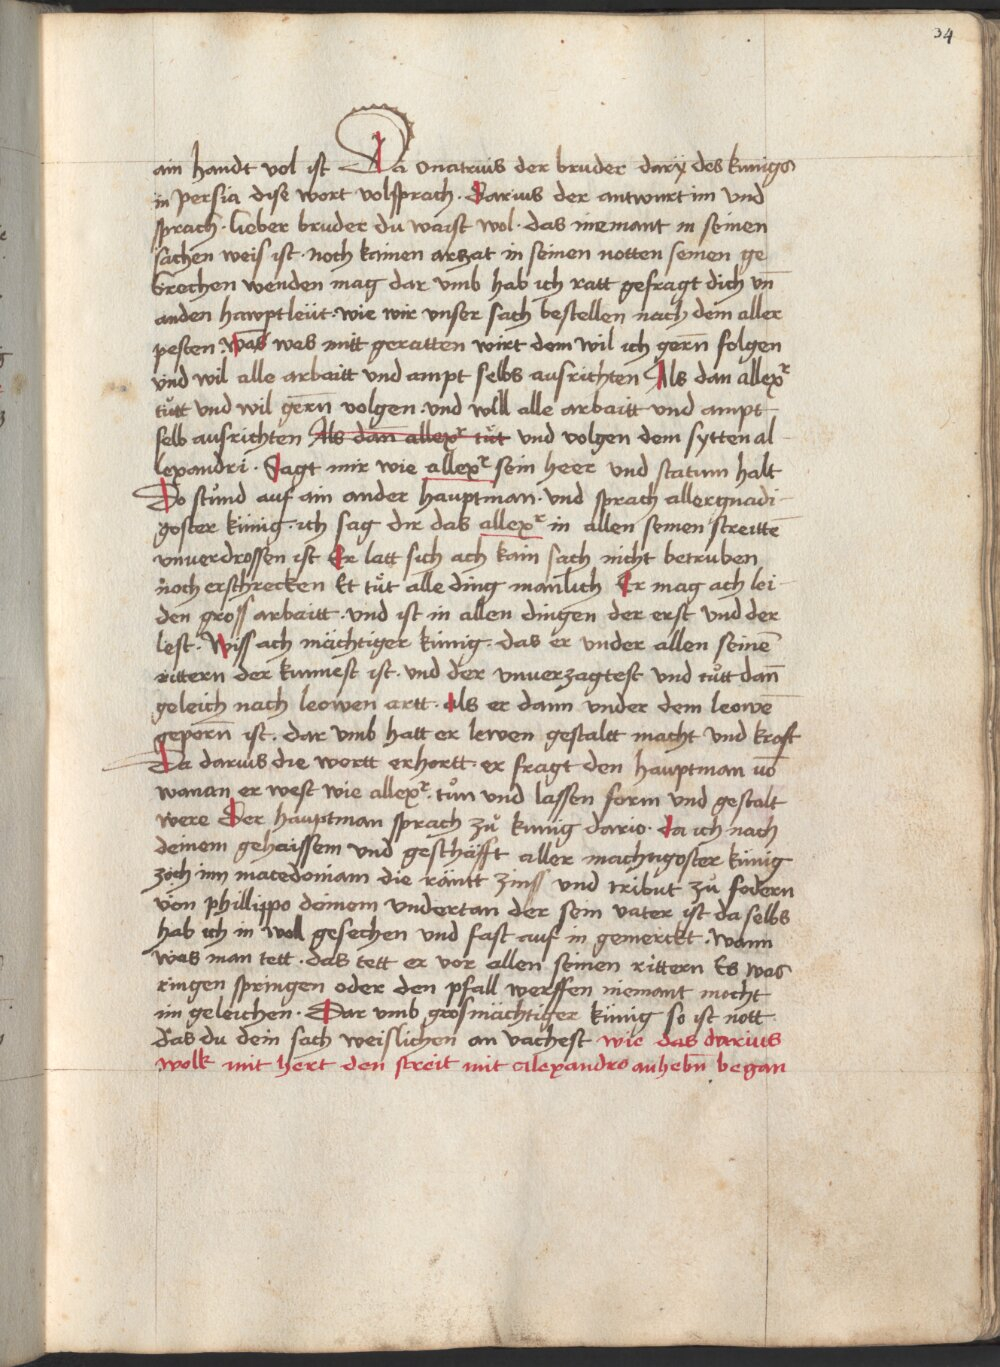 34
ain handt vol ist Da onatrius der bruder darÿ des kunigs
in persia dise wort volsprach · Darius der antwurt im und
sprach · lieber bruder du waist wol · das niemant in seinen
sachen weis ist · noch kainen arczat in seinen notten seinen ge
brechen wenden mag dar umb hab ich ratt gefragt dich vn̄
anden hawptleüt · wie wir unser sach bestellen nach dem aller
pesten · was was mitt geratten wirt dem wil ich gern̄ folgen
vnd wil alle arbaitt und ampt selbs ausrichten Als dan allexr
tůtt und wil gern̄ volgen · und will alle arbaitt und ampt
selb ausrichten Als dan̄ allexr tůt und volgen dem sytten al-
lexandri · Sagt mir wie allexr sein heer und statum halt
Do stůnd auf ain ander hauptman · und sprach allergnadi-
goster künig · ich sag dir das allexr in allen seinen streittē
unverdrossen ist Er latt sich ach kain sach nicht betruben
noch erschrecken Et tůt alle ding manlich Er mag ach lei-
den gross arbaitt · und ist in allen dingen der erst und der
lest · Wiss ach mächtiger künig · das er under allen seinē
rittern der kunnest ist · und der unverzagtest und tůtt dan̄
geleich nach leowen artt · als er dann under dem leowē
geporn̄ ist · dar umb hatt er lewen gestaltt macht und kraft
Da darius die wortt erhortt · er fragt den hauptman vō
wanan er west wie allexr · tůn und lassen form und gestalt
were Der hauptman sprach zů kunig dario · da ich nach
deinem gehaissem und geschäfft aller machtigoster künig
zoch inn macedoniam die räntt zinss und tribut zů fodern
von phillippo deinem undertan der sein vater ist da selbs
hab ich in woll gesechen und fast auf in gemerckt · wann
was man tett · das tett er vor allen seinen rittern Es was
ringen springen oder den pfall werffen niemant mocht
im geleichen · Dar umb grosmächtiger künig so ist nott
das du dein sach weislichen an vachest wie das darius
wolk mit hert den streit mit alexandro anhebn̄ began